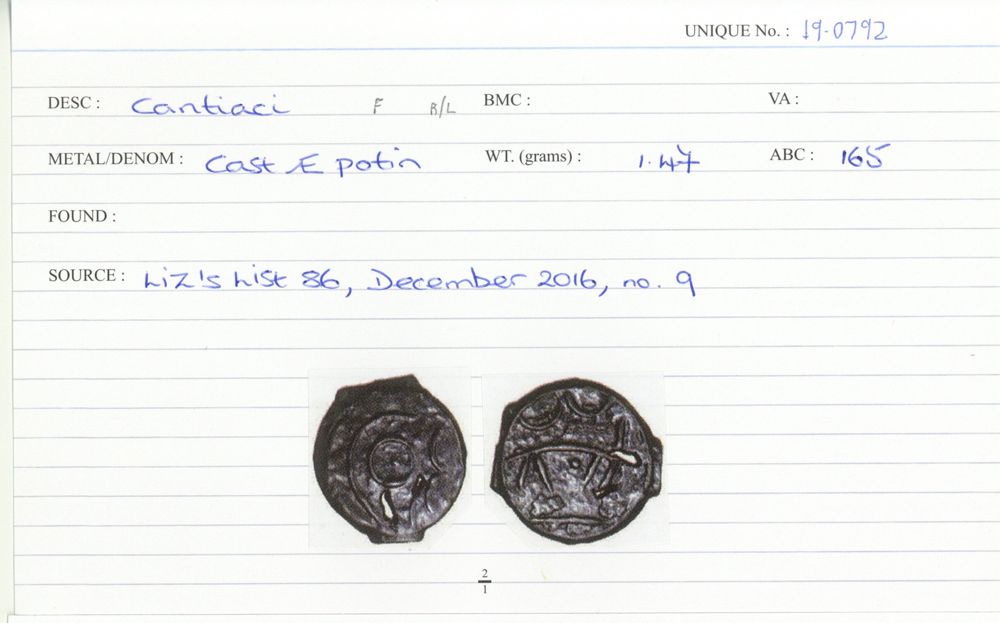 UNIQUE No. : 19-0792
DESC : Cantiaci F B/L BMC : VA :
METAL/DENOM : Cast Æ potin WT. (grams) : 1.47 ABC : 165
FOUND :
SOURCE : Liz's List 86, December 2016, no. 9
2
1